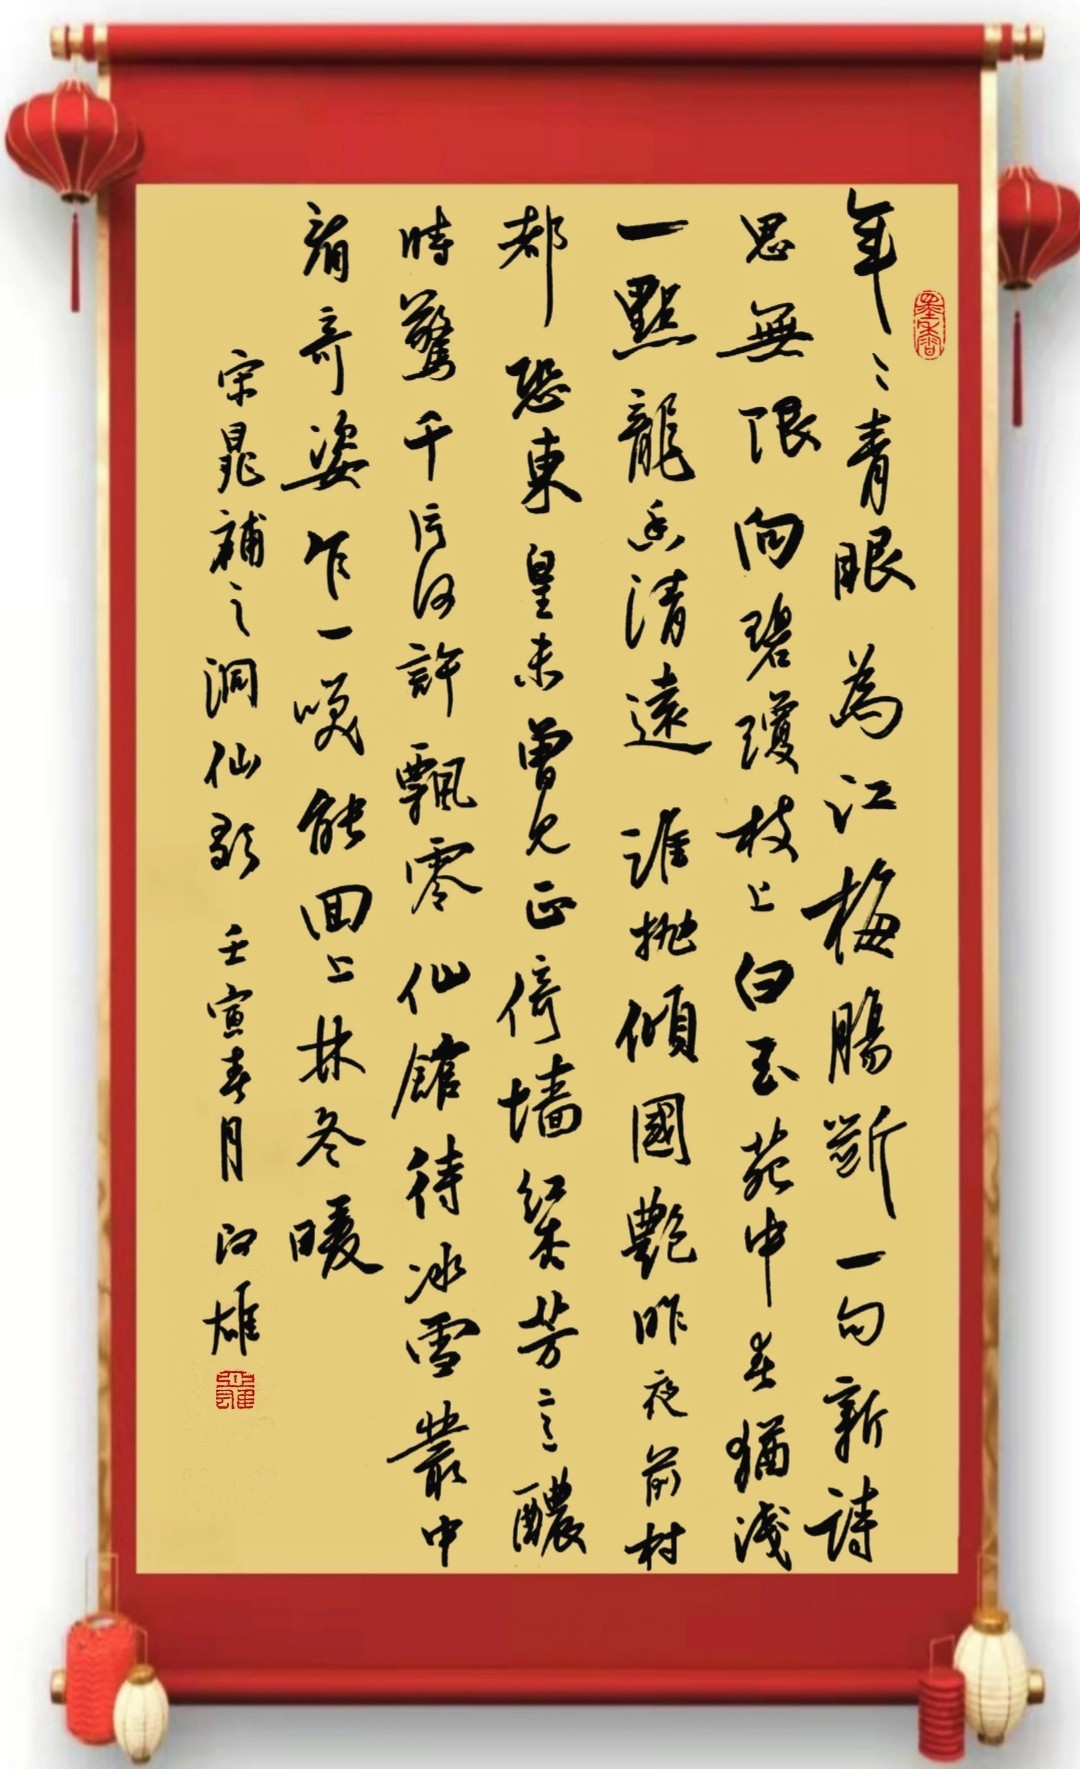 墨香
年〻青眼為江梅腸斷一句新詩
思無限向碧瓊枝上白玉苑中春猶淺
一點龍香清遠誰拋傾國艷昨夜前村
都恐東皇未曾見正倚墻紅杏芳意醲
時驚千片何許飄零仙館待冰雪叢中
看奇姿乍一咲能回上林冬暖
宋晁補之洞仙歌 壬寅春月 雄